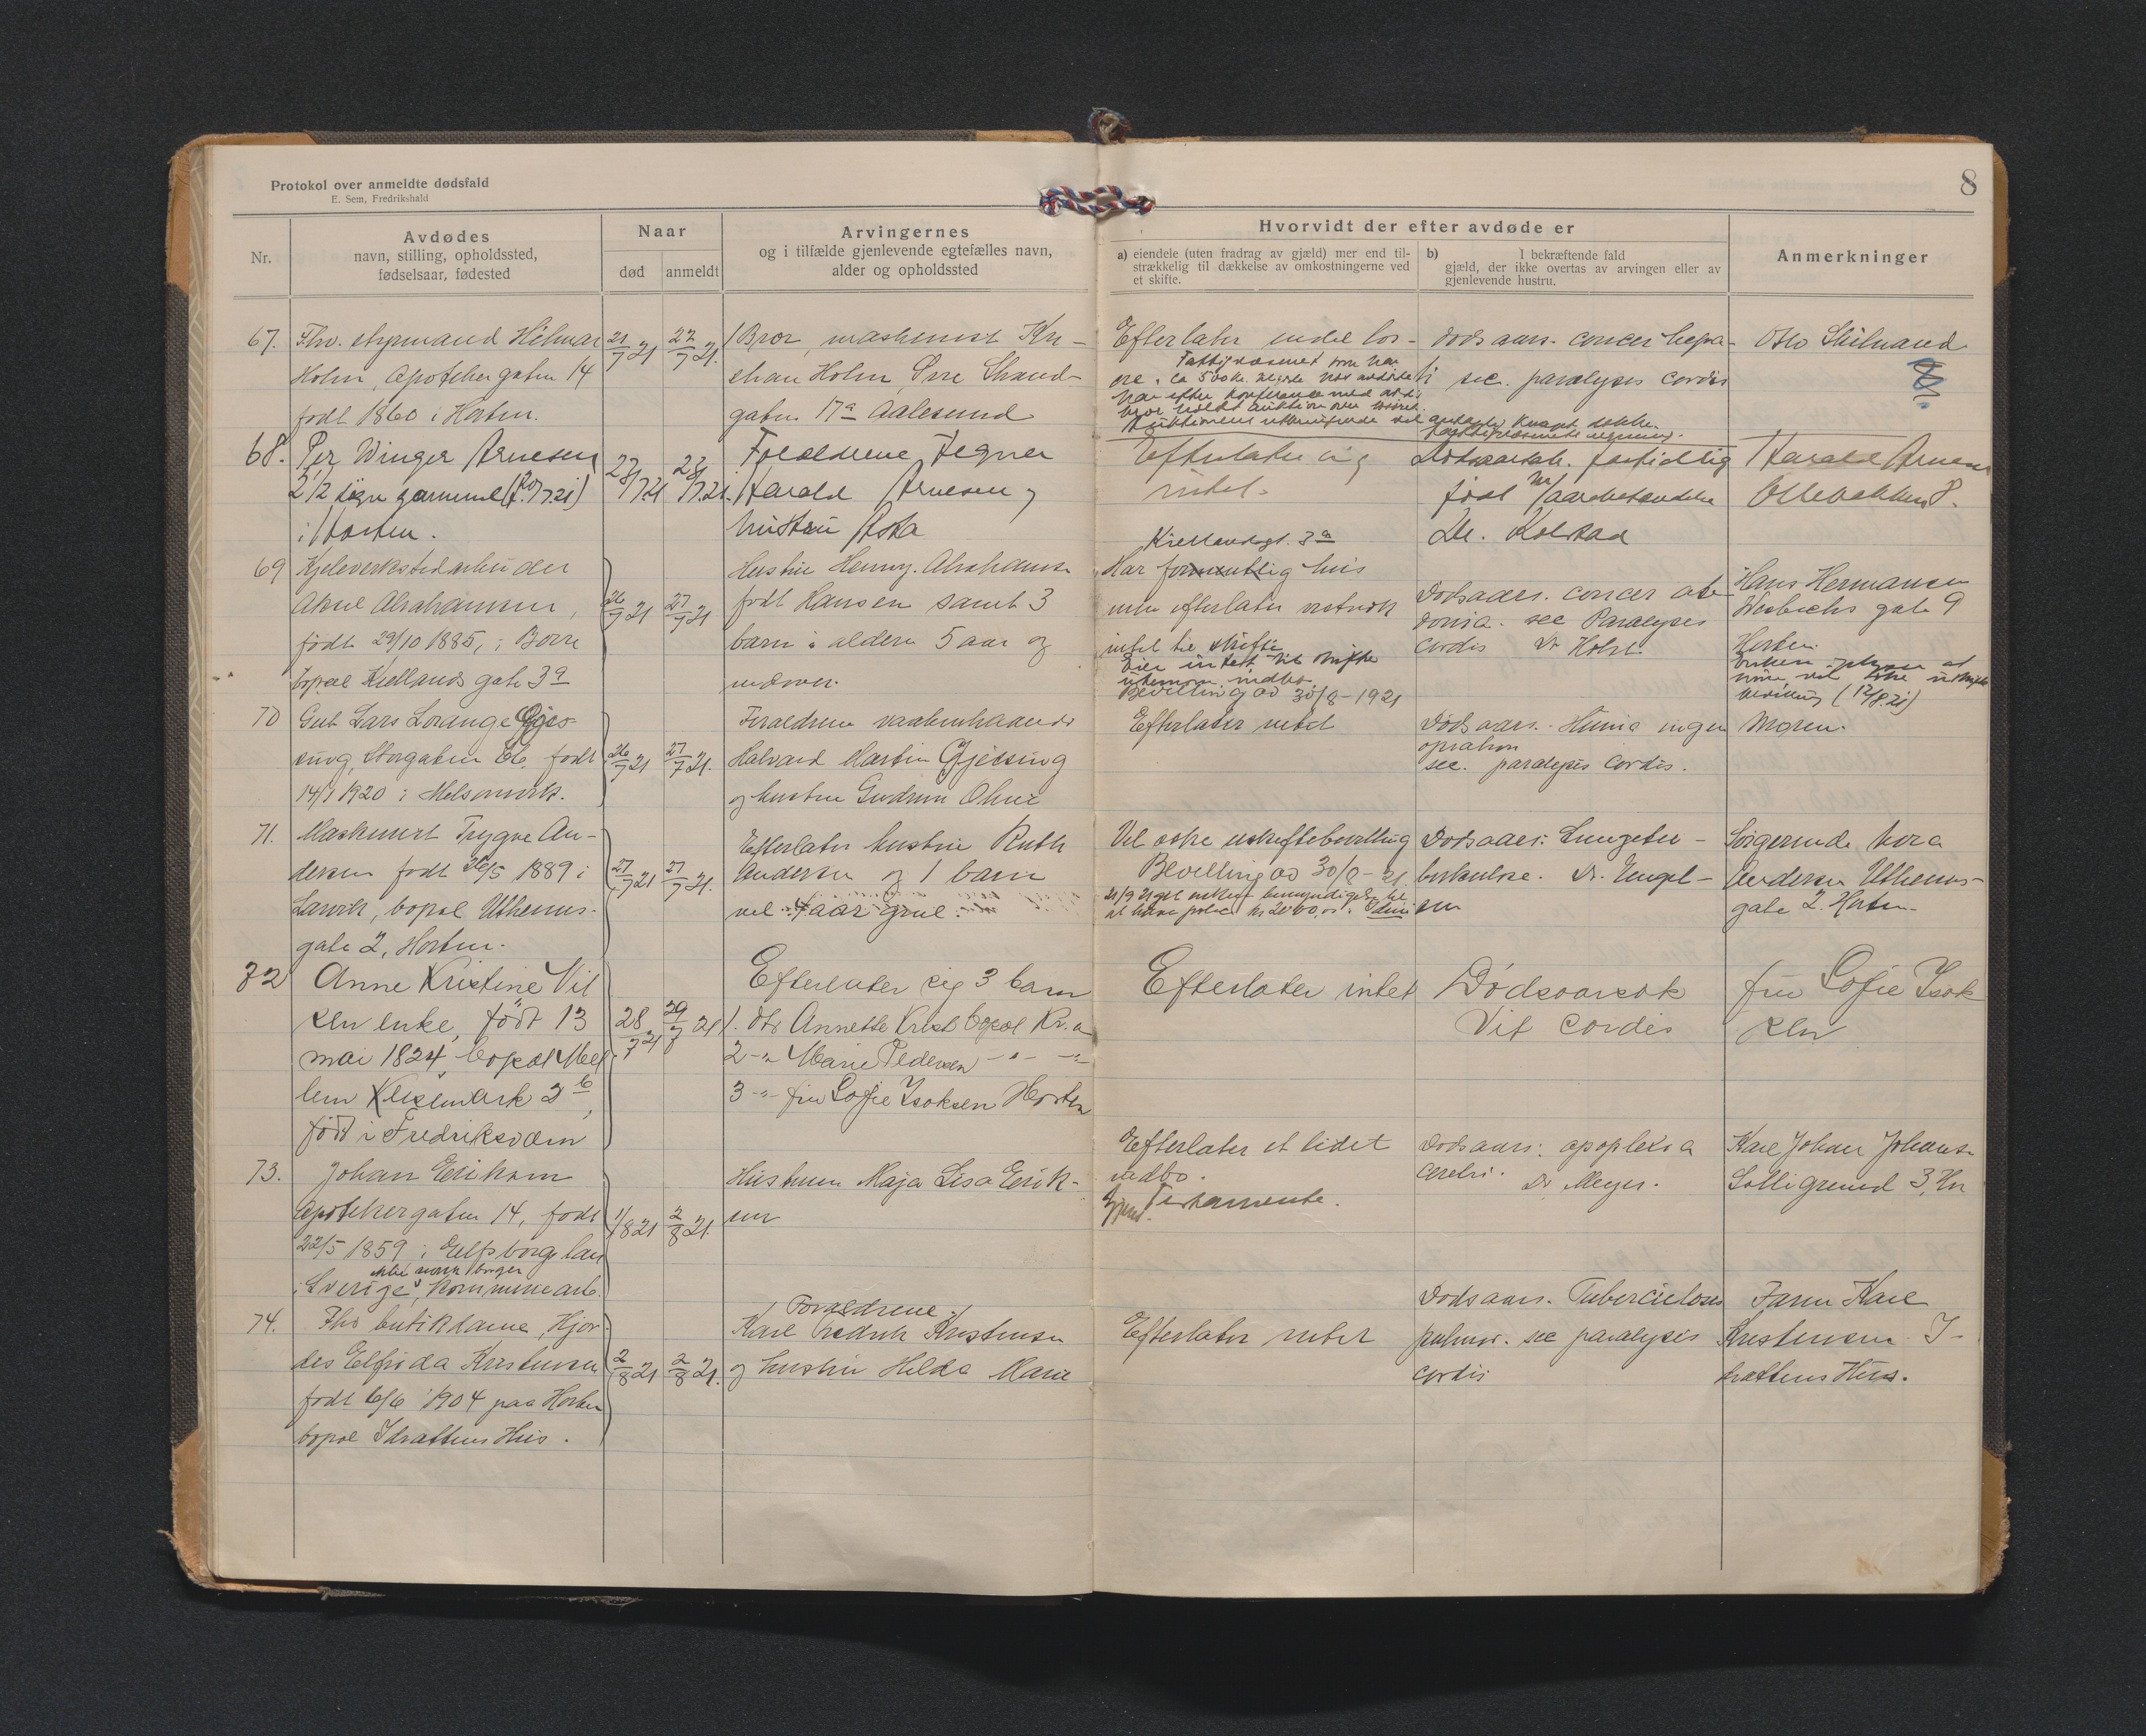 Protokol over anmeldte dødsfald
E. Sem, Fredrikshald
8
Nr.
Avdødes
navn, stilling, opholdssted,
fødselsaar, fødested
Naar
død
anmeldt
Arvingernes
og i tilfælde gjenlevende egtefælles navn,
alder og opholdssted
Hvorvidt der efter avdøde er
a) eiendele (uten fradrag av gjæld) mer end til-
strækkelig til dækkelse av omkostningerne ved
et skifte.
b) I bekræftende fald
gjæld, der ikke overtas av arvingen eller av
gjenlevende hustru.
Anmerkninger
67. Fhv. styrmand Hilmar
Holm, Apothekergaten 14
født 1860 i Horten.
21/7 21
22/7 21.
Bror, maskinist Kri-
stian Holm, Øvre Strand-
gaten 17a Aalesund
Efterlater endel løs-
øre. ca 500 kr.
Fattigvæsenet som har
dødsaars. cancer hepa-
ti sec. paralysis cordis
Otto
68. Per Winger Arnesen
2 1/2 døgn gammel (f. 20/7 21)
i Horten.
23/7 21
23/7 21.
Forældrene Tegner
Harald Arnesen og
hustru Asta
Efterlater sig
intet.
Dødsaarsak. fortidlig
født
Dr. Kolstad
Harald Arnesen
Ollebakken 8.
69 Kjeleverkstedarbeider
Aksel Abrahamsen,
født 29/10 1885, i Borre
bopæl Kiellands gate 3a
26/7 21
27/7 21
Hustru Henny Abrahamsen
født Hansen samt 3
barn i alderen 5 aar og
nedover.
Kiellandsgt. 3a
Har formentlig hus
men efterlater
intet til skifte
Eier intet til skifte
utenom indbo.
Bevilling av 30/8-1921
Dødsaars. cancer abdo-
minia. sec Paralysis
cordis Dr Holst
Hans Hermansen
gate 9
Horten.
Enken
(12/8 21)
70 Gut Lars Lorange Gjes-
sing, Storgaten 86, født
14/1 1920 i Melsomvik.
26/7 21
27/7 21.
Forældrene vaabenhaandv
Halvard Martin Gjessing
og hustru Gudrun Oline
Efterlater intet
Dødsaars. Hernia
opration
sec. paralysis cordis.
Moren.
71. Maskinist Trygve An-
dersen født 26/5 1889 i
Larvik, bopæl Uthenus-
gate 2, Horten.
27/7 21
27/7 21.
Efterlater hustru Ruth
Andersen og 1 barn
vel 4 aar gml.
Vil søke uskiftebevilling
Bevilling av 30/8-21.
21/9 21 git enken bemyndigelse til
at hæve police kr 2000,00 i Idun
Dødsaars: Lungetu-
berkulose. Dr. Engel-
sen
Svigerinde Nora
Andersen Uthenus-
gate 2. Horten.
72 Anne Kristine Nil
sen enke, født 13
mai 1824, bopæl Mel
lem Keisemark 2b,
født i Fredriksværn
28/7 21
29/7 21
Efterlater sig 3 barn
1. dtr Annette Krist bopæl Kr.a
2 -"- Marie Pedersen -"- -"-
3 -"- fru Sofie Isaksen Horten
Efterlater intet
Dødsaarsak
Vit cordis
fru Sofie Isak
sen
73. Johan Erikson
Apothekergaten 14, født
22/5 1859 i Elfsborgs län
ikke norsk borger
i Sverige, kommunearb.
1/8 21
2/8 21.
Hustruen Maja Lisa Erik-
sen
Efterlater et lidet
indbo.
Gjens. Testamente.
Dødsaars: apopleksia
cerebri. Dr Meyer.
Karl Johan Johansen
Solligrend 3, Hn
74. Fhv butikdame, Hjør-
dis Elfrida Kristensen
født 6/6 1904 paa Horten
bopæl Idrættens Hus.
2/8 21
2/8 21.
Forældrene
Karl Fredrik Kristensen
og hustru Hilda Marie
Efterlater intet
Dødsaars. Tuberculosis
pulmon. sec paralysis
cordis
Faren Karl
Kristensen I-
drættens Hus.